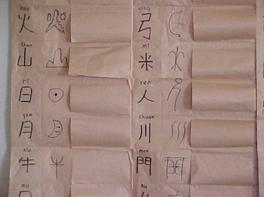 火 弓
shan mi
山 米
ri ren
日 人
yue chuan
月 川
niu men
牛 門
mu